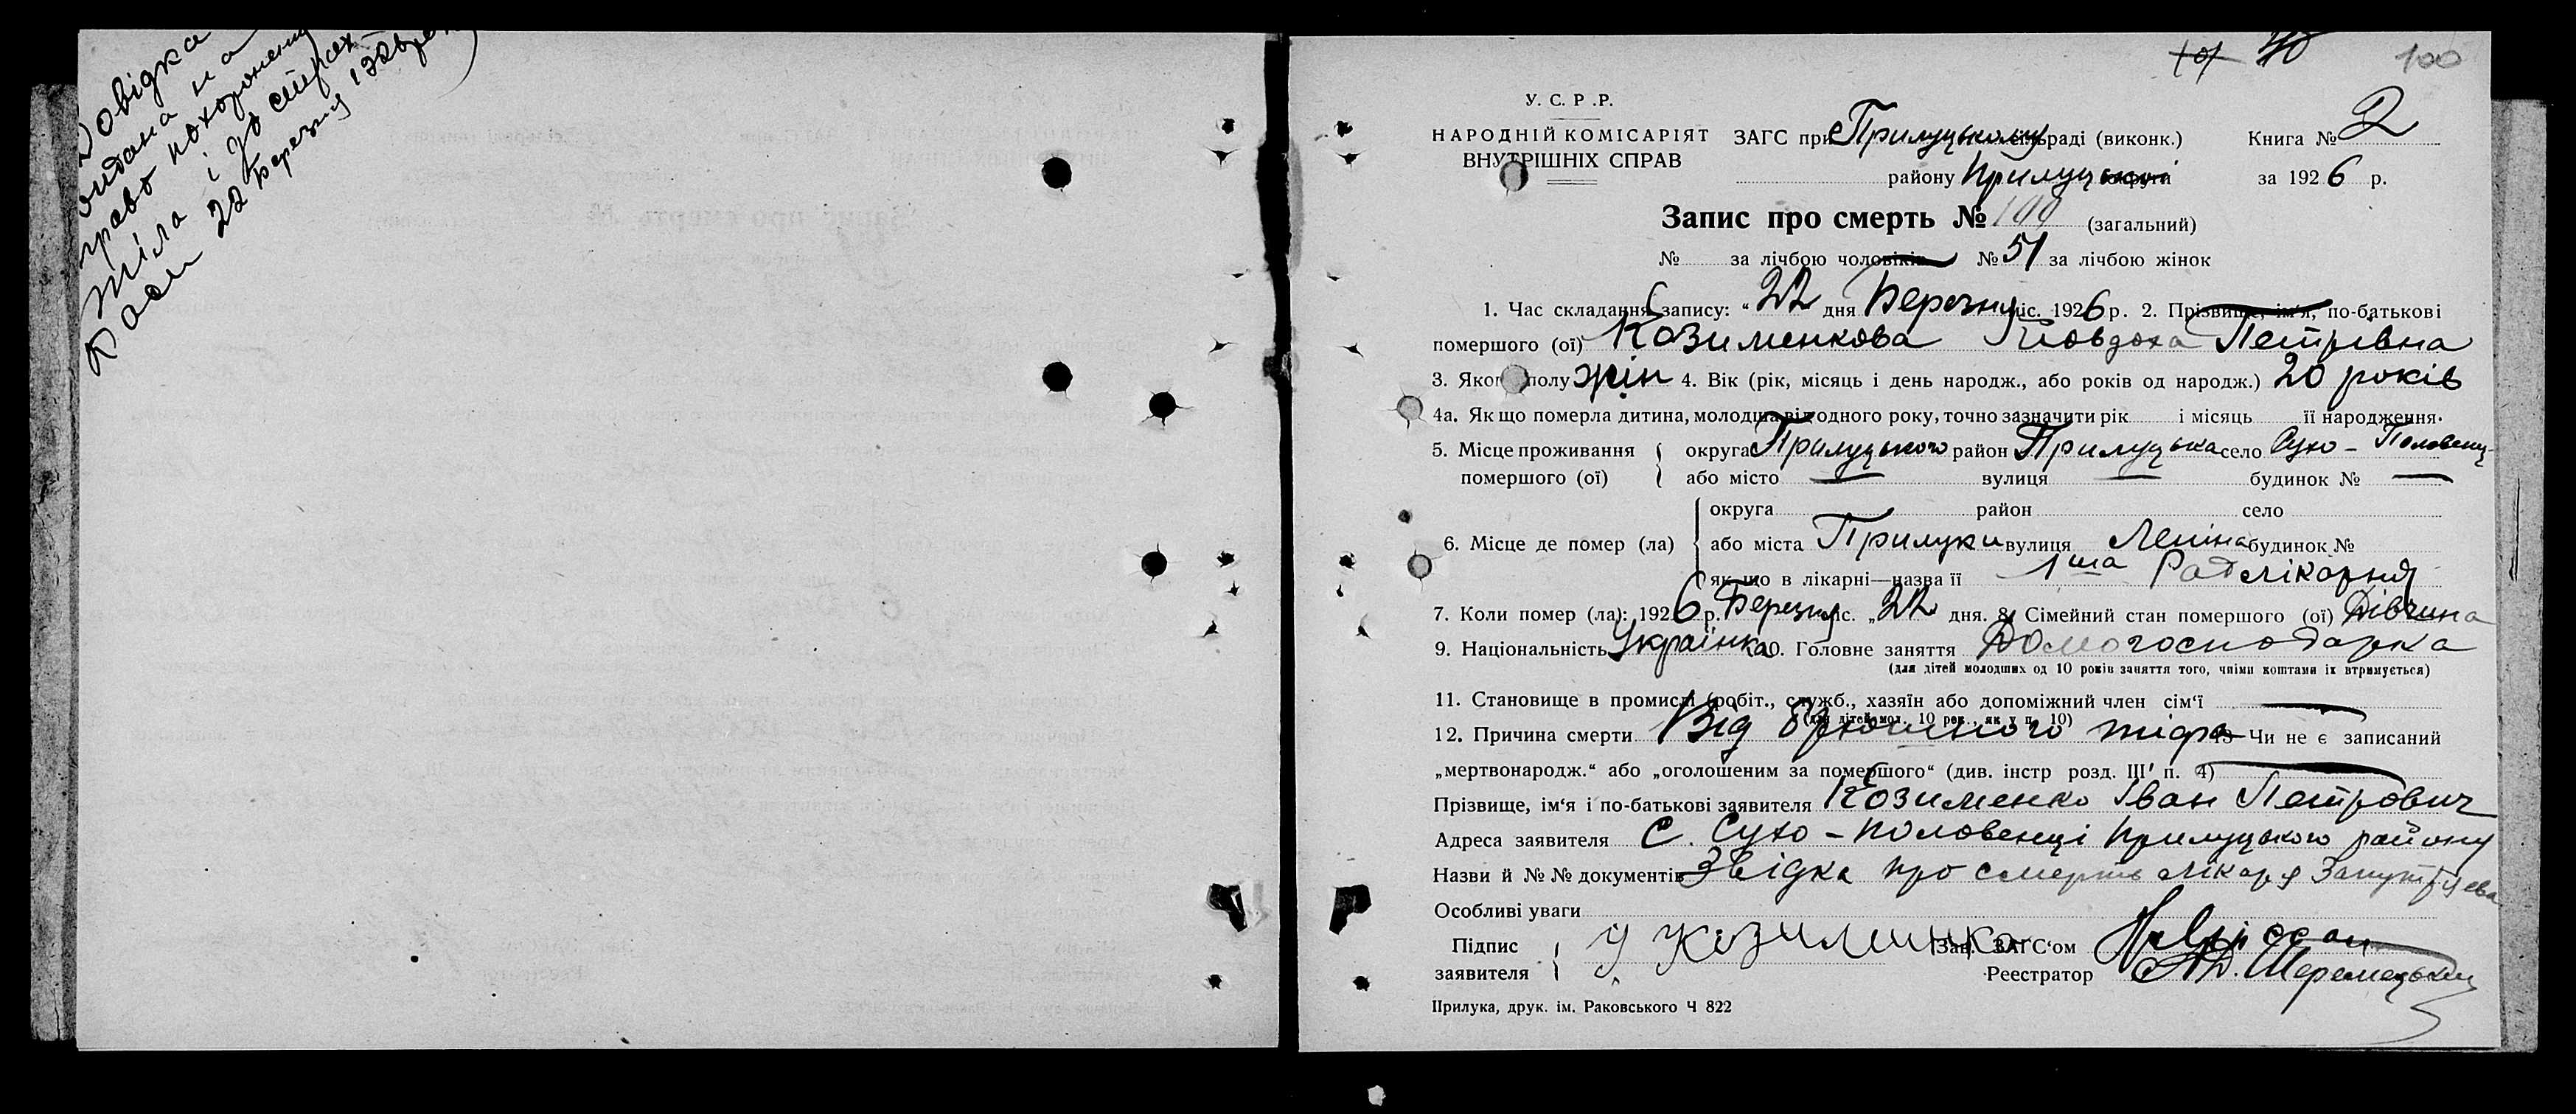 Довідка
видана на
право похоронення
тіла і до страх-
каси 22 Березня 1926 р.
101 40 100
У. С. Р. Р.
НАРОДНІЙ КОМІСАРІЯТ
ВНУТРІШНІХ СПРАВ
ЗАГС при Прилуцькому раді (виконк.) Книга № 2
району Прилуцької округи за 1926 р.
Запис про смерть № 100 (загальний)
№ за лічбою чоловіків № 51 за лічбою жінок
1. Час складання запису: " 22 дня Березня міс. 1926 р. 2. Прізвище, ім'я, по-батькові
помершого (ої) Козименкова Йовдоха Петрівна
3. Якого полу жін 4. Вік (рік, місяць і день народж., або років од народж.) 20 років
4а. Як що померла дитина, молодша від одного року, точно зазначити рік і місяць її народження.
5. Місце проживання округа Прилуцького район Прилуцька село Сухо-Половець-
помершого (ої) або місто — вулиця — будинок № —
округа район село
6. Місце де помер (ла) або міста Прилуки вулиця Леніна будинок №
як що в лікарні—назва її 1ша Рад лікарня
7. Коли помер (ла): 1926 р. Березня міс. „22 дня. 8. Сімейний стан помершого (ої) Дівчина
9. Національність Українка 10. Головне заняття Домогосподарка
(для дітей молодших од 10 років заняття того, чиїми коштами їх втримується)
11. Становище в промислі (робіт., служб., хазяїн або допоміжний член сім'ї —
(для дітей мол. 10 рок., як у п. 10)
12. Причина смерти Від брюшного тіфа 13 Чи не є записаний
„мертвонародж." або „оголошеним за помершого" (див. інстр розд. III п. 4) —
Прізвище, ім'я і по-батькові заявителя Козименко Іван Петрович
Адреса заявителя с. Сухо-Половенці Прилуцького району
Назви й №№ документів Звідка про смерть лікаря
Особливі уваги
Підпис
заявителя
У Козименко
Зав. ЗАГС'ом
Реестратор
Прилука, друк. ім. Раковського Ч 822